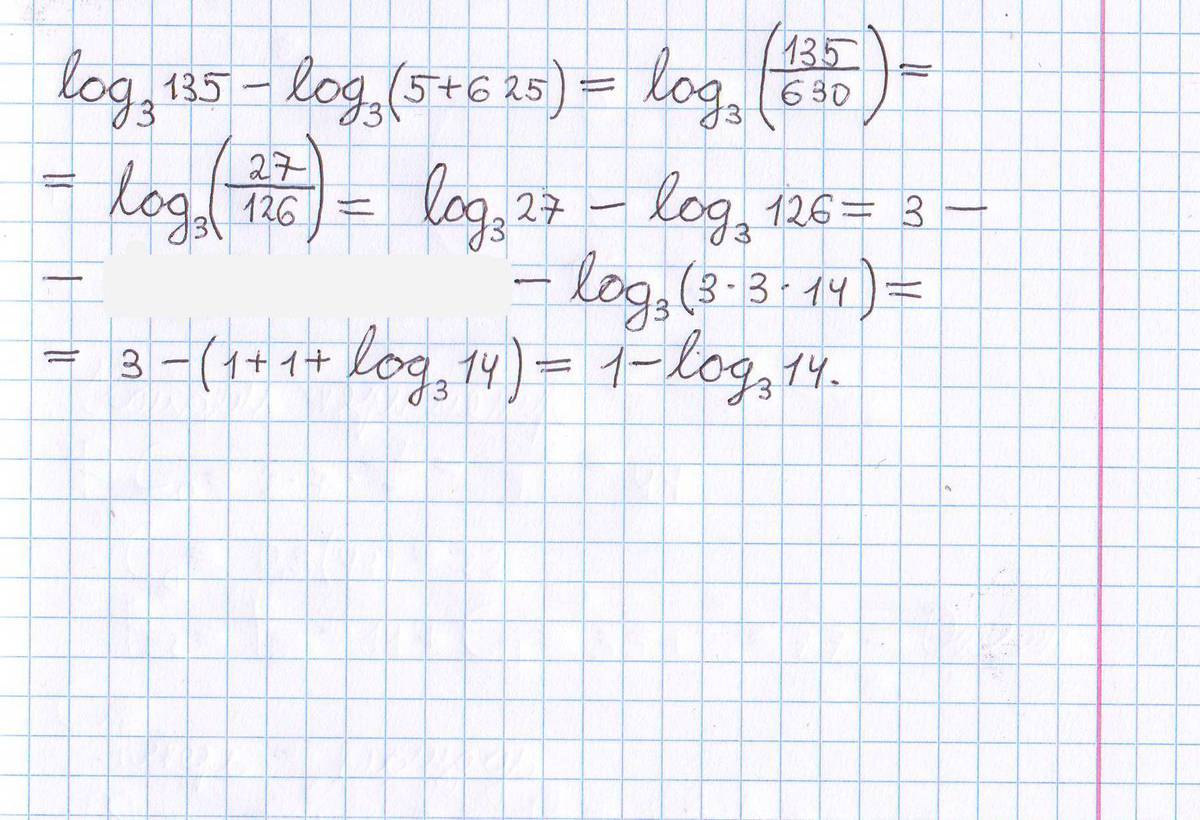 log₃ 135 − log₃ (5+625) = log₃ (135/630) =
= log₃ (27/126) = log₃ 27 − log₃ 126 = 3 −
− − log₃ (3·3·14) =
= 3 − (1+1+ log₃ 14) = 1 − log₃ 14.